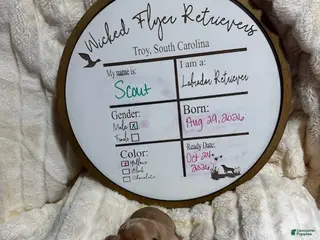 Wicked Flyer Retrievers
Troy, South Carolina
My name is:
Scout
I am a:
Labrador Retriever
Gender:
Male X
Female
Born:
Aug 29, 2026
Color:
X Yellow
Black
Chocolate
Ready Date:
Oct 24
2026
Lancaster
Puppies